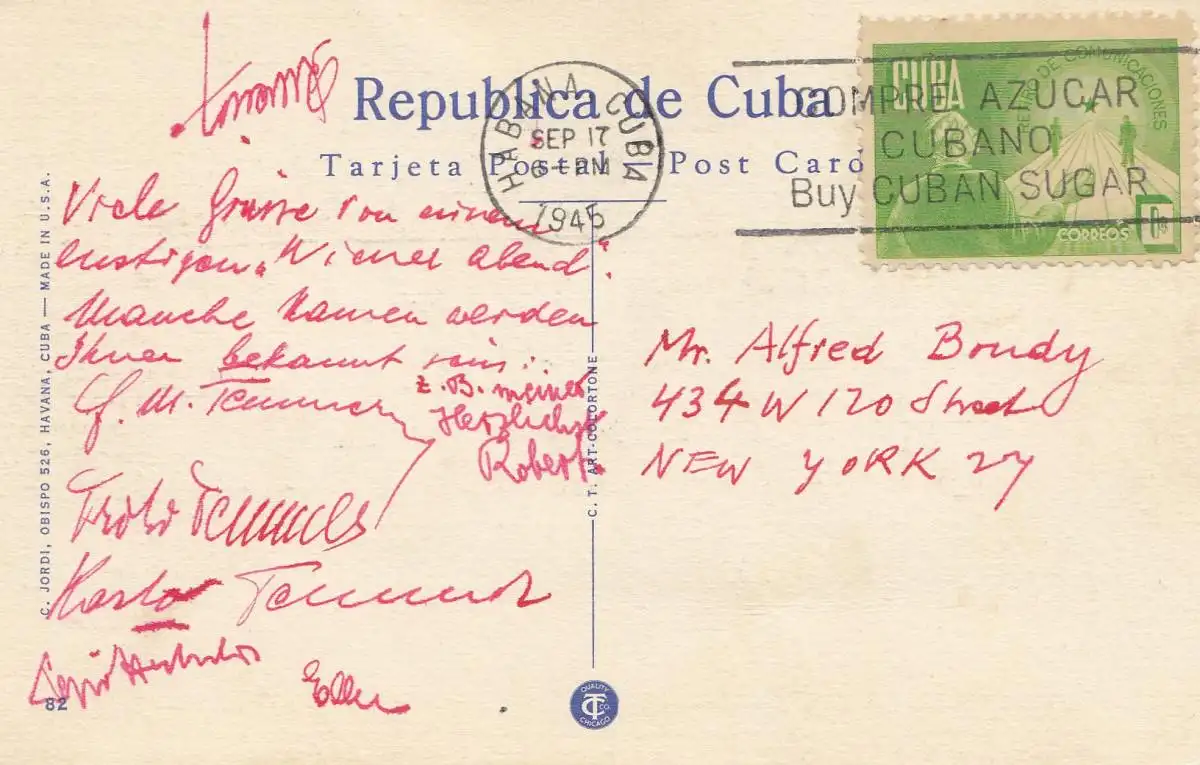 Republica de Cuba
Tarjeta Postal — Post Card
HABANA CUBA
SEP 17
6 - PM
1945
CUBA
RETIRO DE COMUNICACIONES
CORREOS
COMPRE AZUCAR
CUBANO
Buy CUBAN SUGAR
Viele Grüsse von einem
lustigen „Wiener Abend".
Manche Namen werden
Ihnen bekannt sein:
z. B. meiner
Herzlichst
Robert
Mr. Alfred Bondy
434 W 120 Street
NEW YORK 27
C. JORDI, OBISPO 526, HAVANA, CUBA — MADE IN U.S.A.
C. T. ART-COLORTONE
82
QUALITY
CT CO.
CHICAGO